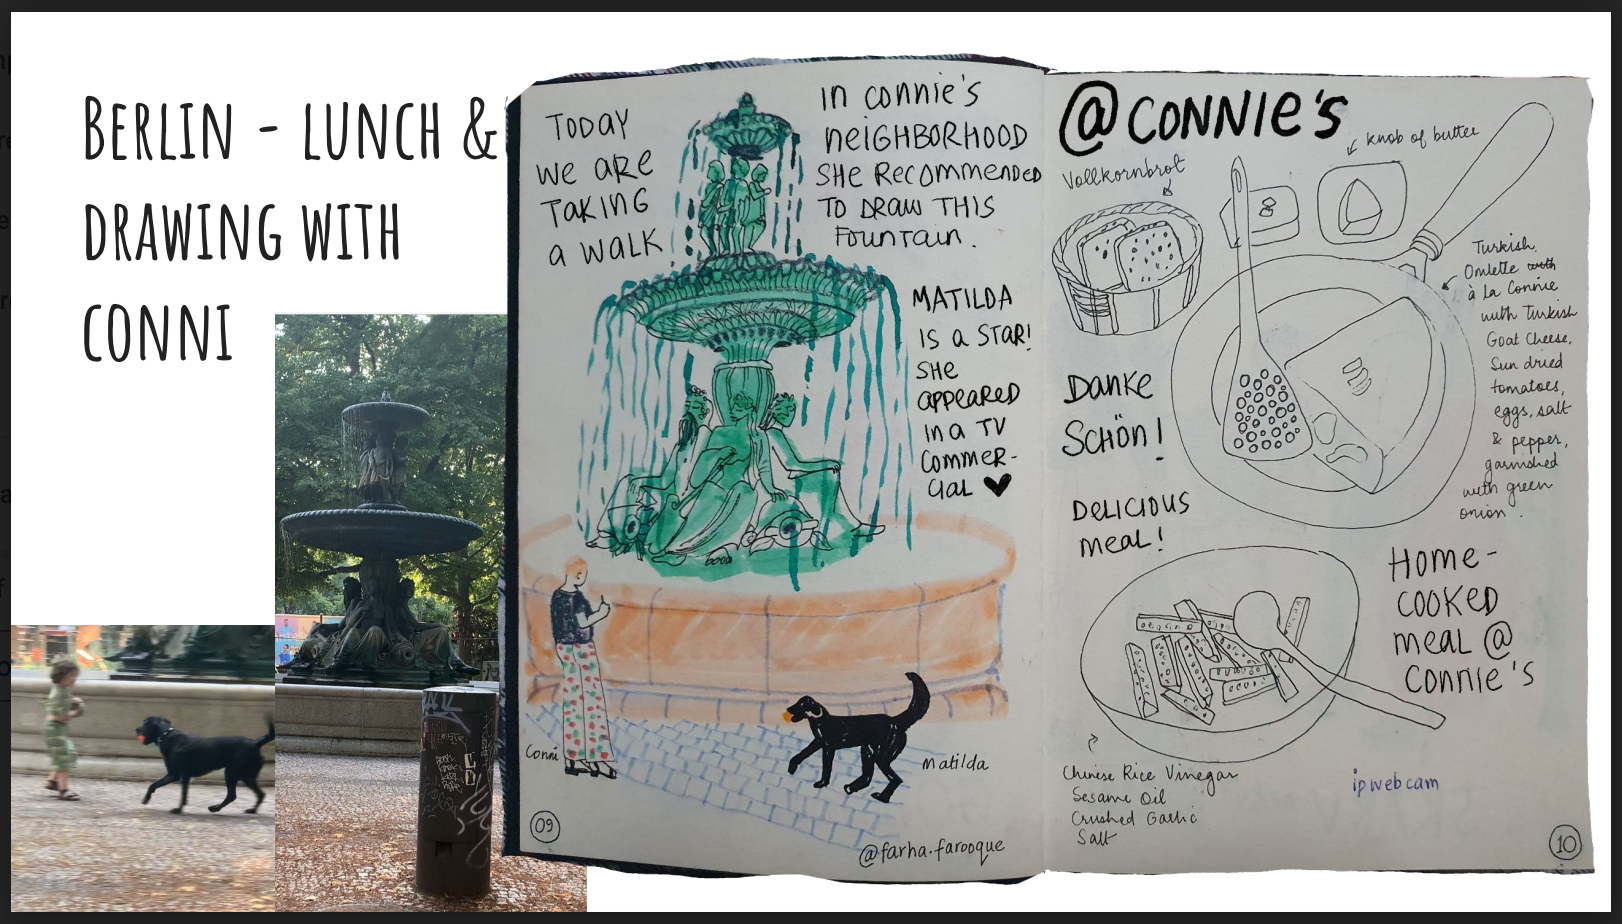 BERLIN - LUNCH &
DRAWING WITH
CONNI
TODAY
WE ARE
TAKING
A WALK
IN CONNIE'S
NEIGHBORHOOD
SHE RECOMMENDED
TO DRAW THIS
FOUNTAIN.
MATILDA
IS A STAR!
SHE
APPEARED
IN A TV
COMMER-
CIAL ♥
Conni
Matilda
09
@farha.farooque
@CONNIE'S
knob of butter
Vollkornbrot
Turkish
Omlette with
à La Connie
with Turkish
Goat Cheese,
Sun dried
tomatoes,
eggs, salt
& pepper,
garnished
with green
onion.
DANKE
SCHÖN!
DELICIOUS
MEAL!
HOME-
COOKED
MEAL @
CONNIE'S
Chinese Rice Vinegar
Sesame Oil
Crushed Garlic
Salt
ipwebcam
10